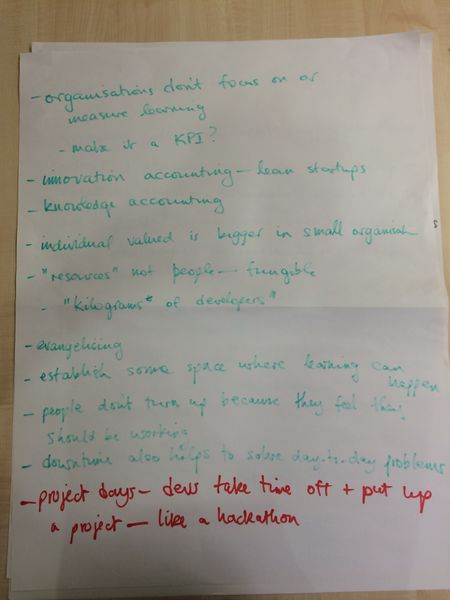 - organisations don't focus on or
measure learning
- make it a KPI?
- innovation accounting - lean startups
- knowledge accounting
- individual valued is bigger in small
- "resources" not people - fungible
- "kilograms of developers"
- evangelicing
- establish some space where learning can
happen
- people don't turn up because they feel they
should be working
- downtime also helps to solve day-to-day problems
- project days - devs take time off + put up
a project - like a hackathon